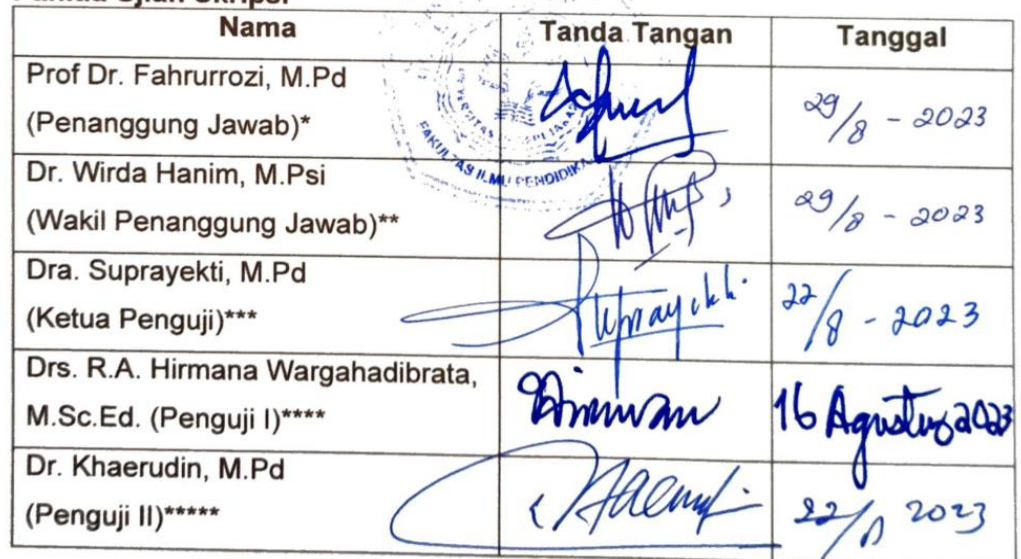 Panitia Ujian Skripsi
Nama Tanda Tangan Tanggal
Prof Dr. Fahrurrozi, M.Pd
(Penanggung Jawab)* 29/8 - 2023
Dr. Wirda Hanim, M.Psi
(Wakil Penanggung Jawab)** 29/8 - 2023
Dra. Suprayekti, M.Pd
(Ketua Penguji)*** Suprayekti 22/8 - 2023
Drs. R.A. Hirmana Wargahadibrata,
M.Sc.Ed. (Penguji I)**** 16 Agustus 2023
Dr. Khaerudin, M.Pd
(Penguji II)***** 22/8 2023
FAKULTAS ILMU PENDIDIKAN